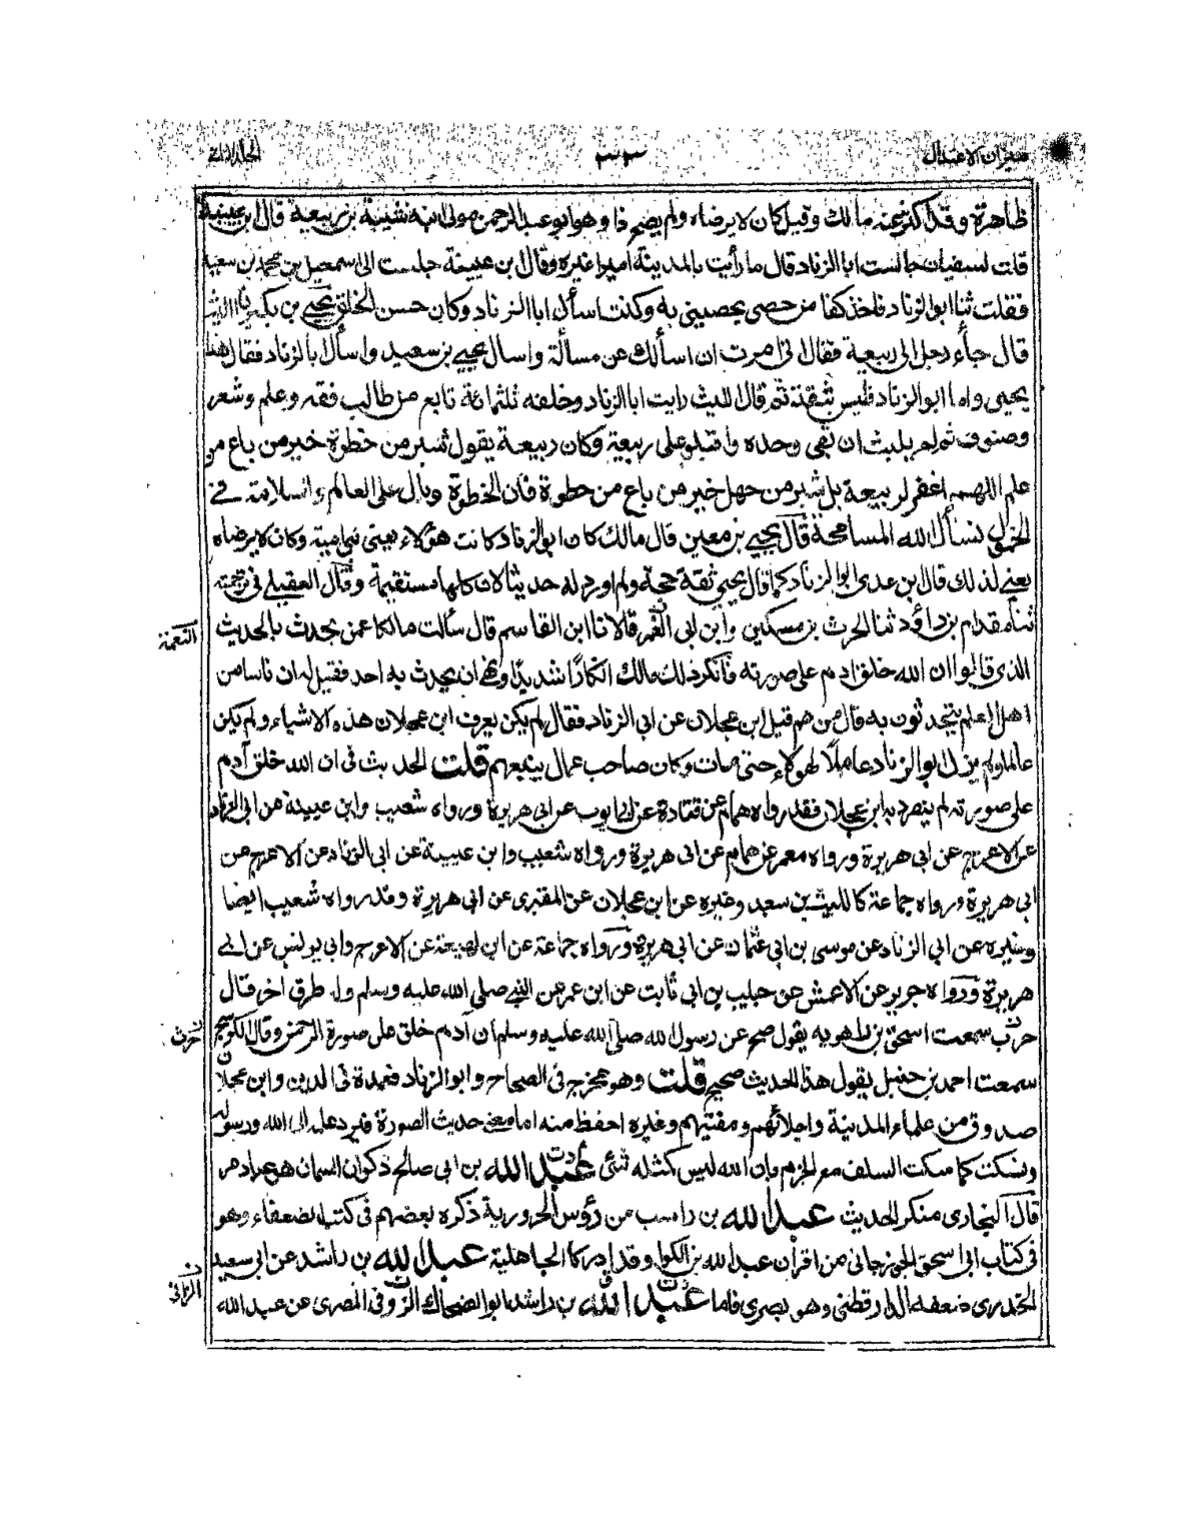 ميزان الاعتدال ٣٣ الجلد الثاني
ظاهرة وقد اكثر عنه مالك وقيل كان لا يرضاه ولم يصح ذا وهو ابو عبد الرحمن مولى ابنة شيبة بن ربيعة قال ابن عيينة
قلت لسفيان جالست ابا الزناد قال ما رأيت بالمدينة اميرا غيره وقال بن عيينة جلست الى اسمعيل بن محمد بن سعيد
فقلت ثنا ابو الزناد فاخذ كفا من حصى يحصبني به وكنت اسأل ابا الزناد وكان حسن الخلق يحيى بن بكير نا الليث
قال جاء رجل الى ربيعة فقال انى امرت ان اسألك عن مسألة واسال يحيى بن سعيد واسأل ابا لزناد فقال هذا
يحيى واما ابو الزناد فليس بثقة ثم قال الليث رايت ابا الزناد وخلفه ثلثمائة تابع من طالب فقه وعلم وشعر
وصنوف ثم لم يلبث ان بقى وحده واقبلوا على ربيعة وكان ربيعة يقول شبر من خطوة خير من باع من
علم اللهم اغفر لربيعة بل شبر من جهل خير من باع من حظوة فان الحظوة وبال على العالم والسلامة في
الخمول نسأل الله المسامحة قال يحيى بن معين قال مالك كان ابو الزناد كاتب هؤلاء يعنى بني امية وكان لا يرضاه
يعنى لذلك قال بن عدى ابو الزناد كما قال يحيى ثقة حجة ولم اورد له حديثا لان كلها مستقيمة وقال العقيلى فى ترجمته
ثنا مقدام بن داؤد ثنا الحرث بن مسكين وابن ابى الغمر قالا نا ابن القاسم قال سألت مالكا عمن يحدث بالحديث
الذى قالوا ان الله خلق ادم على صورته فأنكر ذلك مالك انكارًا شديدًا ونهى ان يحدث به احد فقيل له ان ناسا من
اهل العلم يتحدثون به قال من هم قيل ابن عجلان عن ابى الزناد فقال لم يكن يعرف ابن عجلان هذه الاشياء ولم يكن
عالما ولم يزل ابو الزناد عاملًا لهؤلاء حتى مات وكان صاحب عمال يتبعهم قلت الحديث فى ان الله خلق آدم
على صورته لم ينفرد به ابن عجلان فقد رواه همام عن قتادة عن ابى ايوب عن ابى هريرة ورواه شعيب وابن عيينة عن ابى الزناد
عن الاعرج عن ابى هريرة ورواه معمر عن همام عن ابى هريرة ورواه شعيب وابن عيينة عن ابى الزناد عن الاعرج عن
ابى هريرة ورواه جماعة كالليث بن سعد وغيره عن ابن عجلان عن المقبرى عن ابى هريرة وقد رواه شعيب ايضا
وغيره عن ابى الزناد عن موسى بن ابى عثمان عن ابى هريرة ورواه جماعة عن ابن لهيعة عن الاعرج وابى يونس عن ابى
هريرة ورواه جرير عن الاعمش عن حبيب بن ابى ثابت عن ابن عمر عن النبى صلى الله عليه وسلم وله طرق اخر قال
حرب سمعت اسحق بن راهويه يقول صح عن رسول الله صلى الله عليه وسلم ان آدم خلق على صورة الرحمن وقال الكوسج
سمعت احمد بن حنبل يقول هذا الحديث صحيح قلت وهو مخرج فى الصحاح وابو الزناد فعمدة فى الدين وابن عجلان
صدوق من علماء المدينة واجلائهم ومفتيهم وغيره احفظ منه اما معنى حديث الصورة فنرد علمه الى الله ورسوله
ونسكت كما سكت السلف مع الجزم بان الله ليس كمثله شئ عبد الله بن ابى صالح ذكوان السمان هو عباد مر
قال البخارى منكر الحديث عبد الله بن راسب من رؤس الحرورية ذكره بعضهم فى كتب الضعفاء وهو
فى كتاب ابى اسحق الجوزجانى من اقران عبد الله بن الكوا وقد ادركا الجاهلية عبد الله بن راشد عن ابى سعيد
الخدرى ضعفه الدارقطنى وهو بصرى فاما عبد الله بن راشد ابو الضحاك الزوفى المصرى عن عبد الله